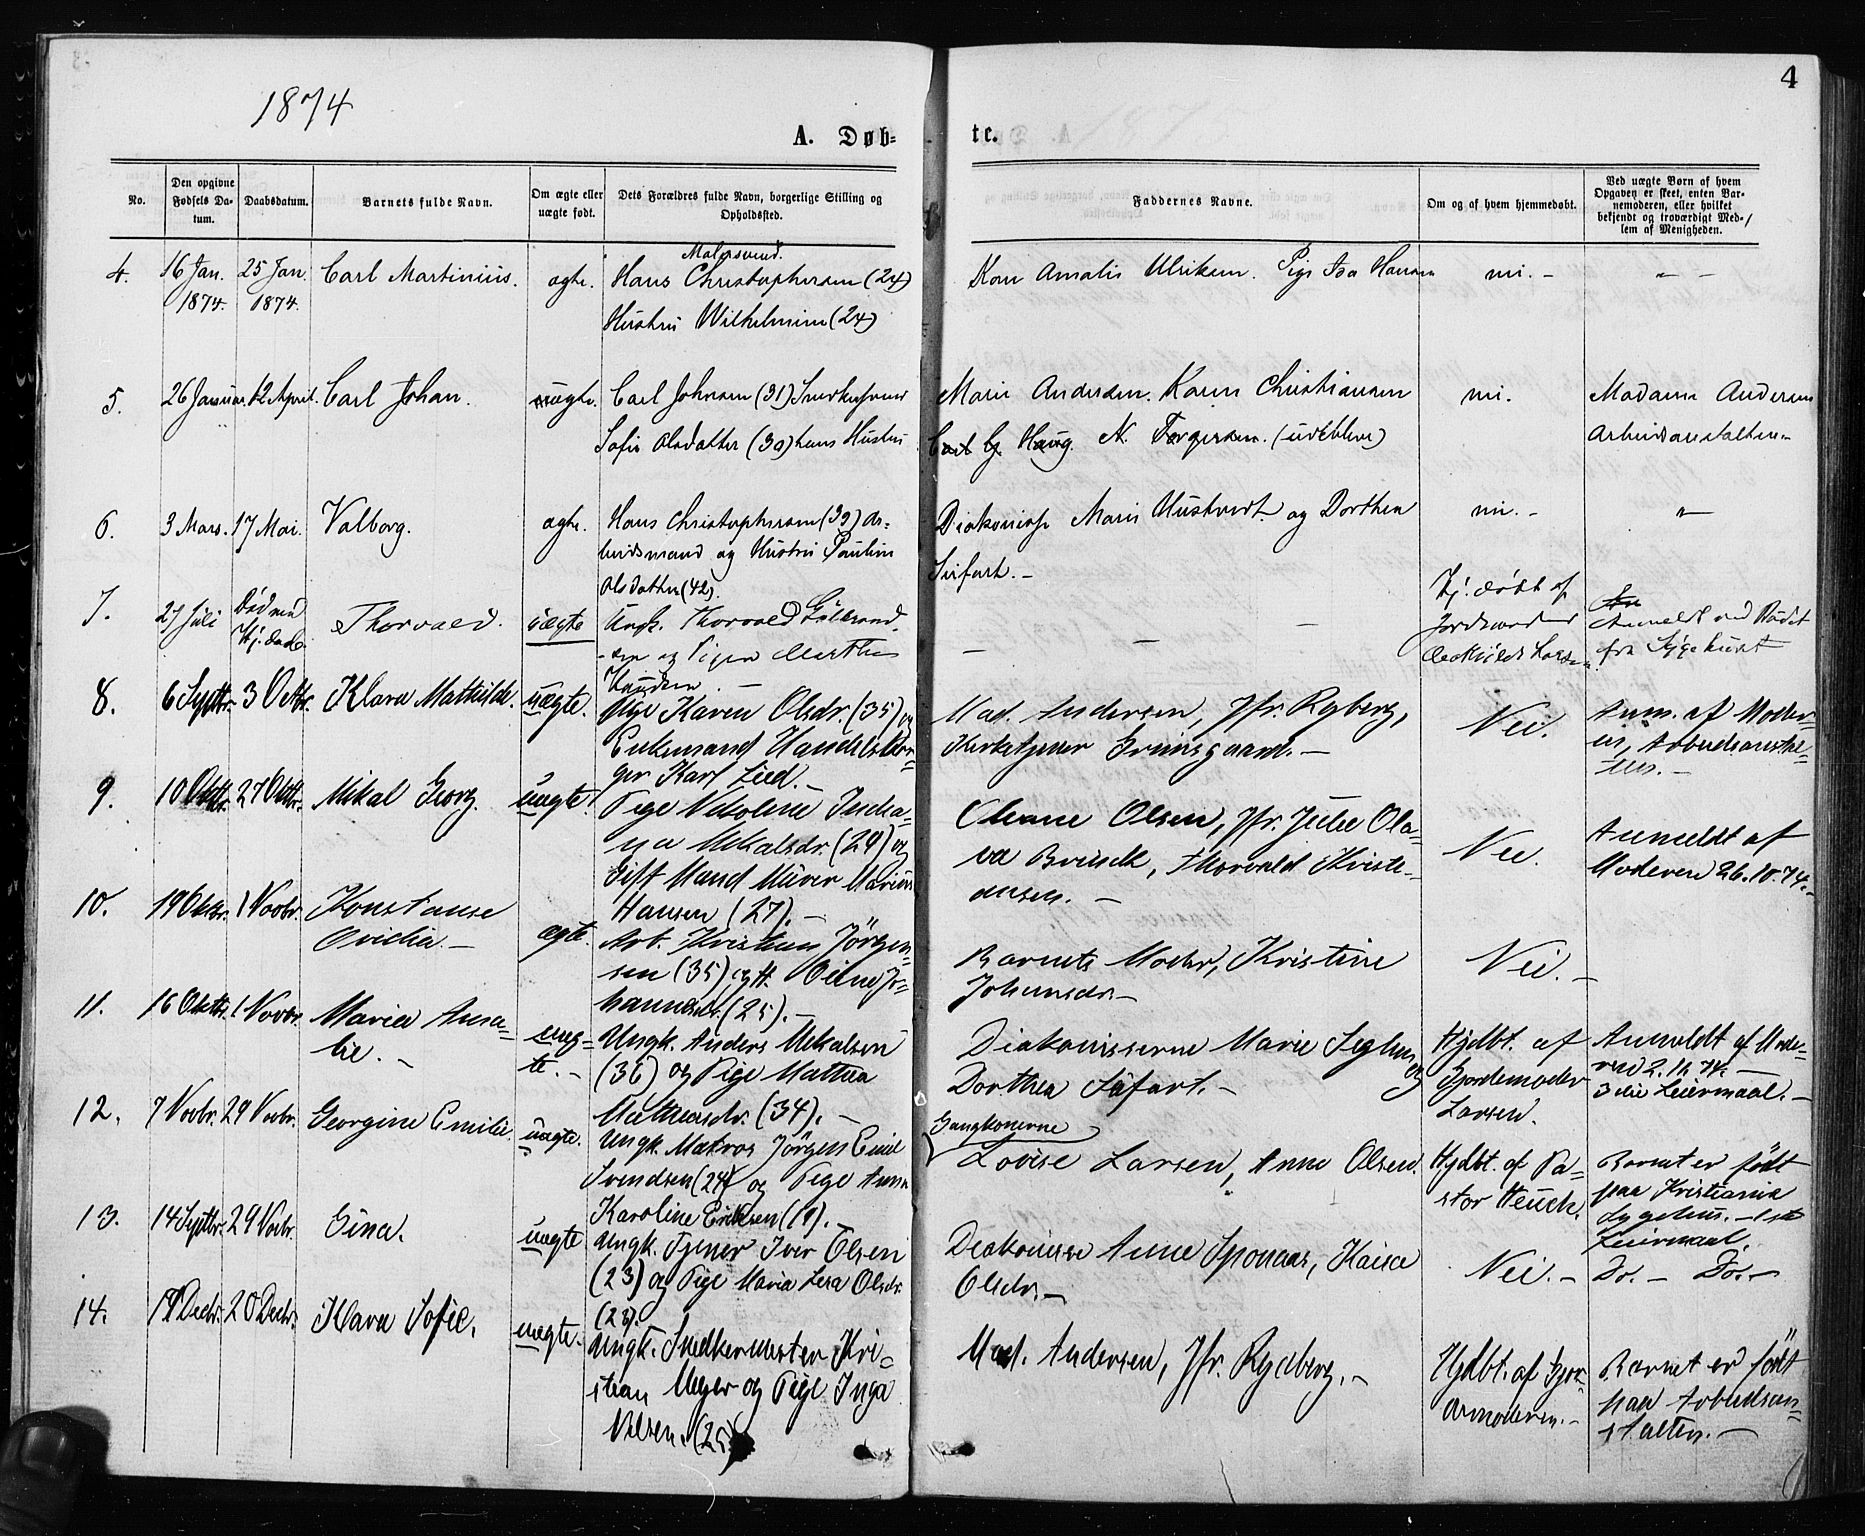 4
1874
A. Døb=
te.
No.
Den opgivne Fødsels Da-tum.
Daabsdatum.
Barnets fulde Navn.
Om ægte eller uægte født.
Dets Forældres fulde Navn, borgerlige Stilling og Opholdssted.
Faddernes Navne.
Om og af hvem hjemmedøbt.
Ved uægte Børn af hvem Opgaven er skeet, enten Bar-nemoderen, eller hvilket bekjendt og troværdigt Med-lem af Menigheden.
4.
16 Jan. 1874.
25 Jan 1874.
Carl Martinius.
ægte.
Malersvend.
Hans Christophersen (24)
Hustru Wilhelmine (24)
Kone Amalie Ulriksen. Pige Isa Hansen
nei. -
" -
5.
26 Januar.
12 April.
Carl Johan.
uægte.
Carl Johnsen (31) Snedkersvend
Sofie Olsdatter (30) hans Hustru
Marie Andersen. Karen Christiansen
Carl G. Haug. N. Torgersen. (udeblev)
nei.
Madame Andersen
Arbeidsanstalten.-
6.
3 Mars.
17 Mai.
Valborg.
ægte.
Hans Christophersen (39) Ar=
beidsmand og Hustru Pauline
Olsdatter (42).
Diakonisse Marie Hustvedt og Dorthea
Siefart. -
nei. -
"
7.
27 Juli
Død med Hj. daab.
Thorvald.
uægte
Ungk. Thorvald Gulbrand-
sen og Pigen Marthe
Knudsen. -
-
Hj. døbt af
Jordmoder
Larsen.
Anmeldt ved Bødet
fra Sygehuset
8.
6 Septbr.
3 Octbr.
Klara Mathilde.
uægte.
Pige Karen Olsdr. (35) og
Enkemand Handelsbor=
ger Karl Lied. -
Mad. Andersen, Jfr. Ryberg,
Kirketjener Grimsgaard. -
Nei.
Anm. af Moder=
en, Arbeidsanstal=
ten. -
9.
10 Oktbr.
27 Oktbr.
Mikal Georg.
uægte.
Pige Nikoline India=
na Mikalsdr. (29) og
Gift Mand Murer Marius
Hansen (27). -
Oleane Olsen, Jfr. Julie Ola=
va Brinck, Thorvald Kristi=
ansen. -
Nei.
Anmeldt af
Moderen 26.10.74.-
10.
19 Oktbr.
1 Novbr.
Konstanse
Ovidia. -
ægte.
Arb. Kristian Jörgen=
sen (35) og H. Oline Jo=
hannesdr. (25). -
Barnets Moder, Kristine
Johansdr. -
Nei. -
11.
16 Oktbr.
1 Novbr.
Maria Ama=
lie. -
uæg=
te. -
Ungk. Anders Mikalsen
(36) og Pige Mathea
Mathiasdr. (34). -
Diakonisserne Marie Seghus og
Dorthea Siifart. -
Hjdbt. af
Gjordemoder
Larsen.
Anmeldt af Mode=
ren 2.11.74. -
3die Leiermaal. -
12.
7 Novbr.
29 Novbr.
Georgine Emilie.
uægte.
Ungk. Matros Jørgen Emil
Svendsen (24) og Pige Anna
Karoline Eriksen (19). -
Gangkonerne
Lovise Larsen, Anne Olsen.
Hjdbt. af Pa=
stor Heuch.
Barnet er født
paa Kristiania
Sygehus. - 1ste
Leiermaal.
13.
14 Septbr.
29 Novbr.
Gina.
uægte
Ungk. Tjener Iver Olsen
(23) og Pige Maria Lesa Olsdr.
(28).
Diakonisse Anne Sponaas, Kaisa
Olsdr. -
Nei. -
Do. - Do. -
14.
20 Decbr.
Klara Sofie.
uægte.
Ungk. Snedkermester Kri=
stian Meyer og Pige Inga
Nilsen. (25)
Mad. Andersen, Jfr. Rydberg. -
Hjdbt. af Gjor=
demoderen. -
Barnet er født
paa Arbeidsan=
stalten. -